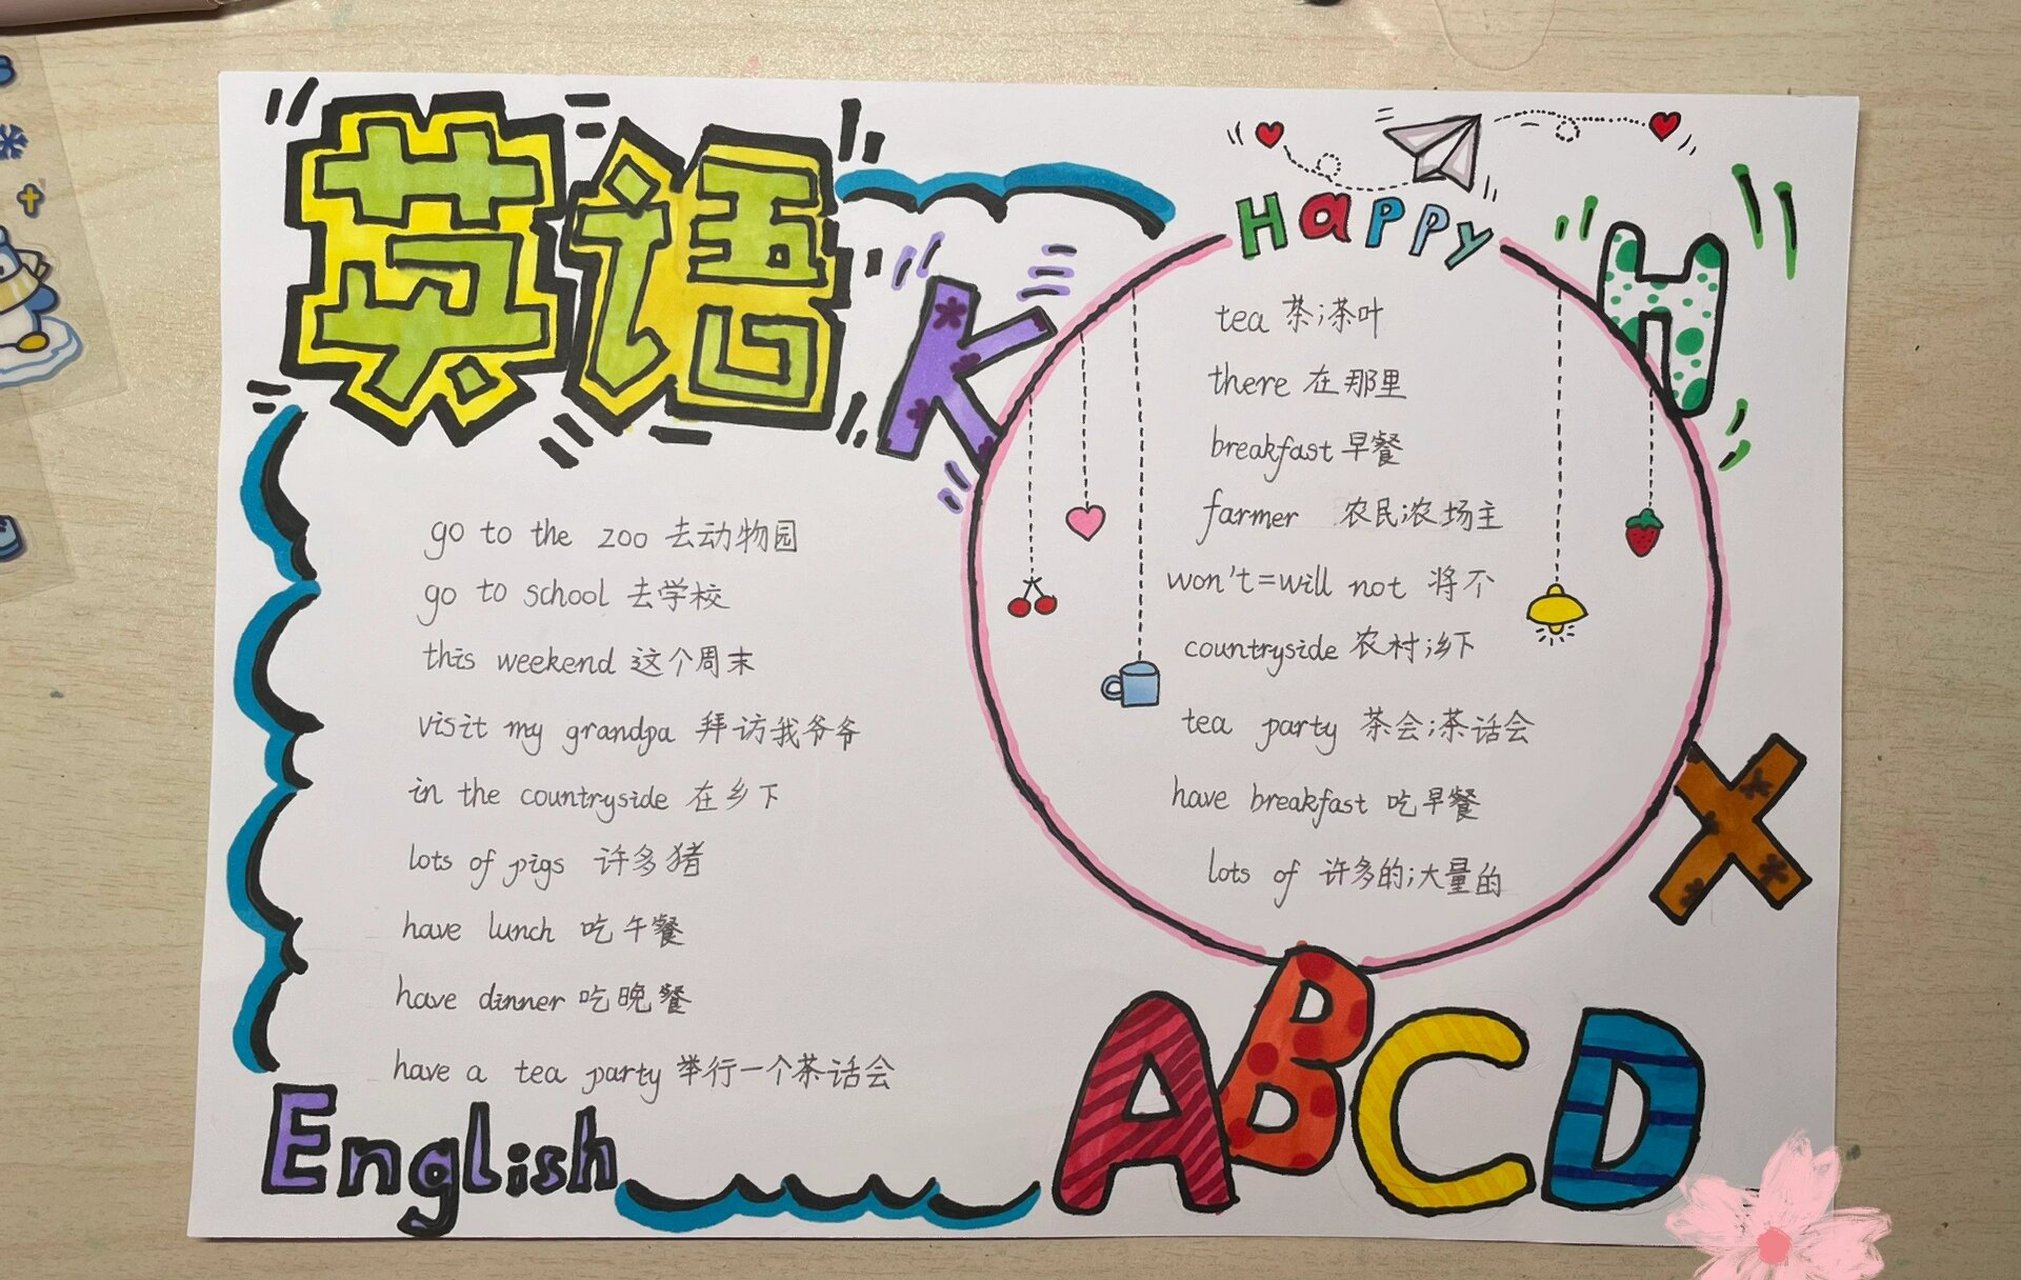 英语
K
go to the zoo 去动物园
go to school 去学校
this weekend 这个周末
visit my grandpa 拜访我爷爷
in the countryside 在乡下
lots of pigs 许多猪
have lunch 吃午餐
have dinner 吃晚餐
have a tea party 举行一个茶话会
English
Happy
H
tea 茶;茶叶
there 在那里
breakfast 早餐
farmer 农民;农场主
won't=will not 将不
countryside 农村;乡下
tea party 茶会;茶话会
have breakfast 吃早餐
lots of 许多的;大量的
X
ABCD